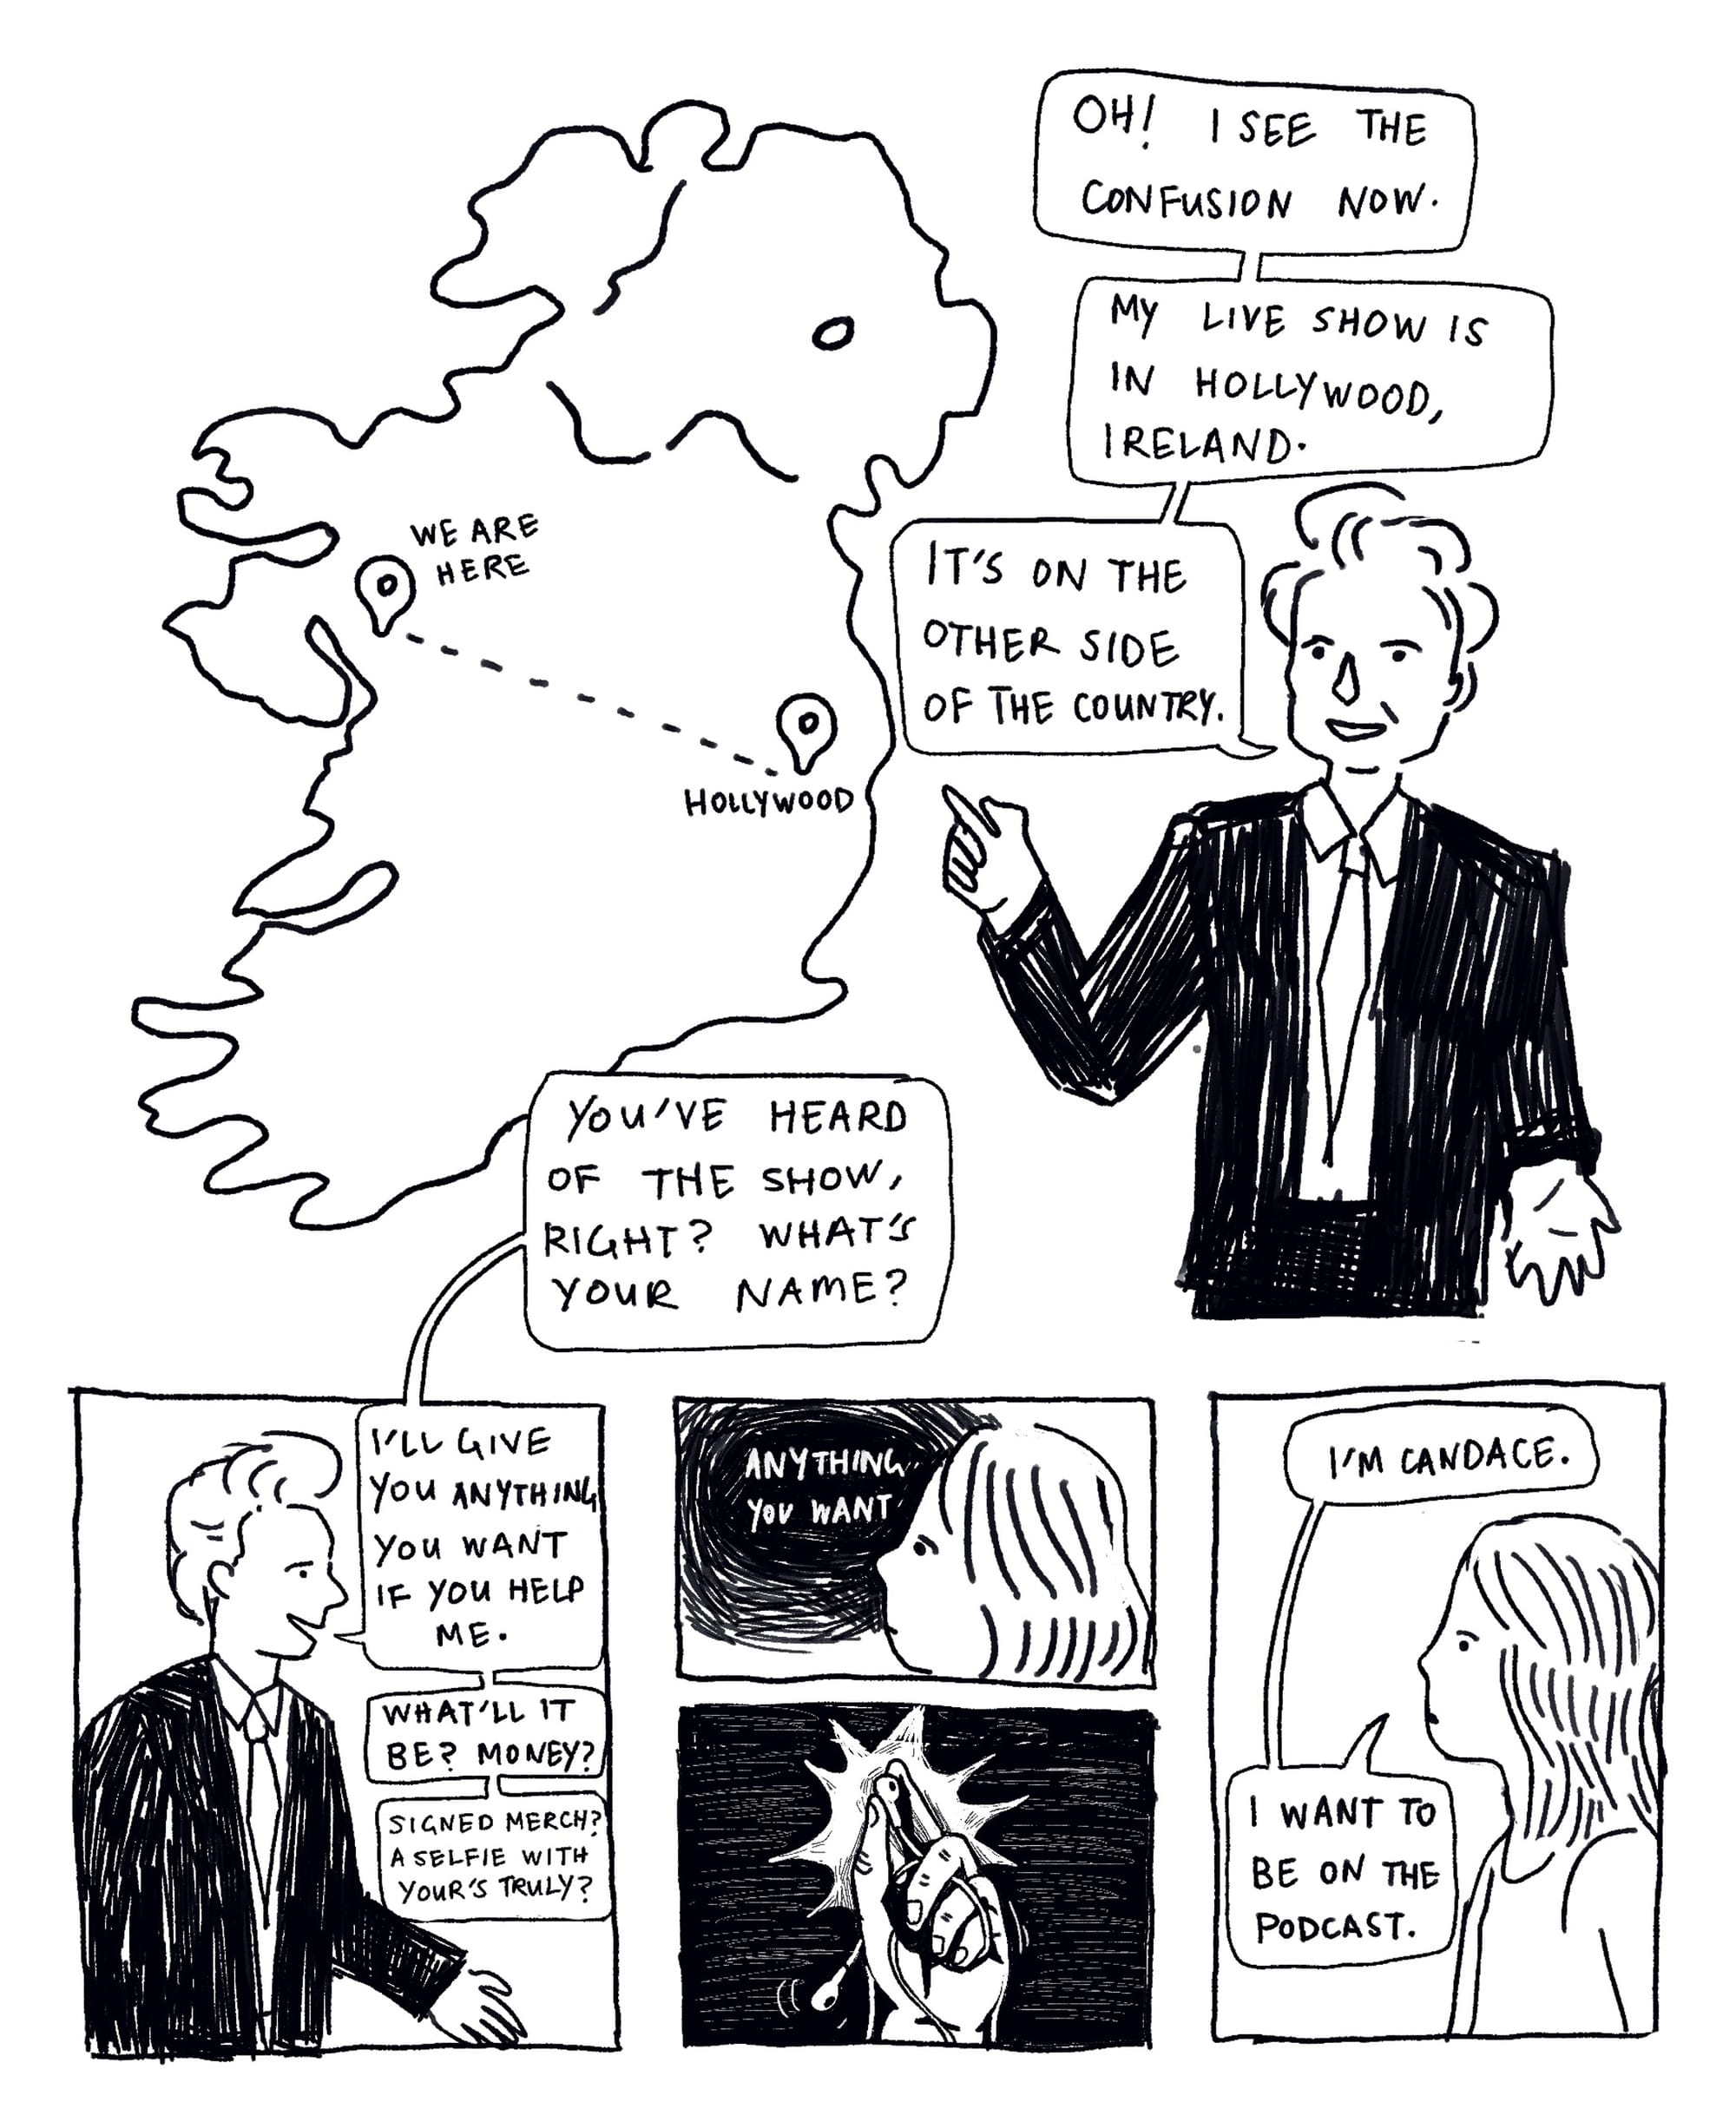 OH! I SEE THE
CONFUSION NOW.
MY LIVE SHOW IS
IN HOLLYWOOD,
IRELAND.
IT'S ON THE
OTHER SIDE
OF THE COUNTRY.
WE ARE
HERE
HOLLYWOOD
YOU'VE HEARD
OF THE SHOW,
RIGHT? WHAT'S
YOUR NAME?
I'LL GIVE
YOU ANYTHING
YOU WANT
IF YOU HELP
ME.
WHAT'LL IT
BE? MONEY?
SIGNED MERCH?
A SELFIE WITH
YOUR'S TRULY?
ANYTHING
YOU WANT
I'M CANDACE.
I WANT TO
BE ON THE
PODCAST.